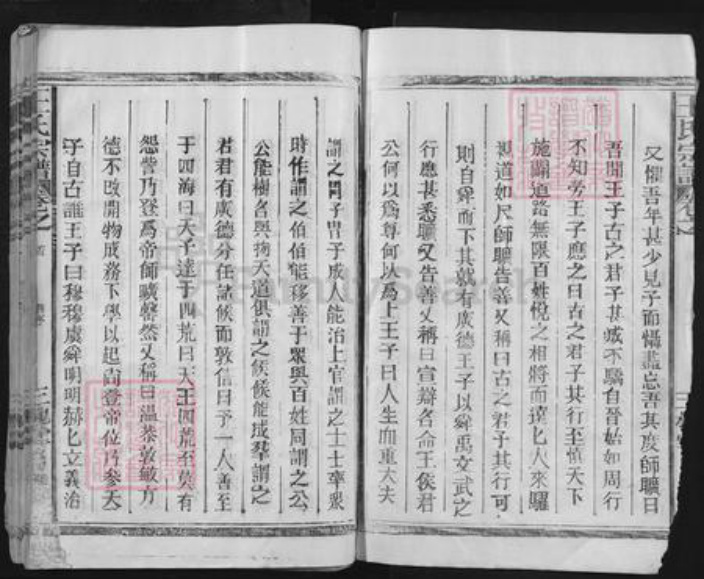 又懼吾年甚少見子而懾盡忘吾其度師曠曰
吾聞王子古之君子甚成不驕自晉始如周行
不知勞王子應之曰古之君子其行至慎天下
施關道路無限百姓悅之相將而遠七人來驩
視道如尺師曠告善又稱曰古之君子其行可
則自舜而下其孰有廣德王子以舜禹文武之
行應甚悉曠又告善又稱曰宣辯名命王侯君
公何以爲尊何以爲上王子曰人生而重丈夫
謂之冑子冑子成人能治上官謂之士士率眾
時作謂之伯伯能移善于眾與百姓同謂之公
公能樹名與物天道俱謂之候候能成羣謂之
君君有廣德分任諸候而敦信曰予一人善至
于四海曰天子達于四荒曰天王四荒至莫有
怨訾乃登爲帝師曠罄然又稱曰溫恭敦敏方
德不改開物成務下學以起尚登帝位乃參天
子自古誰王子曰穆穆虞舜明明赫匕立義治
王氏宗譜卷之首